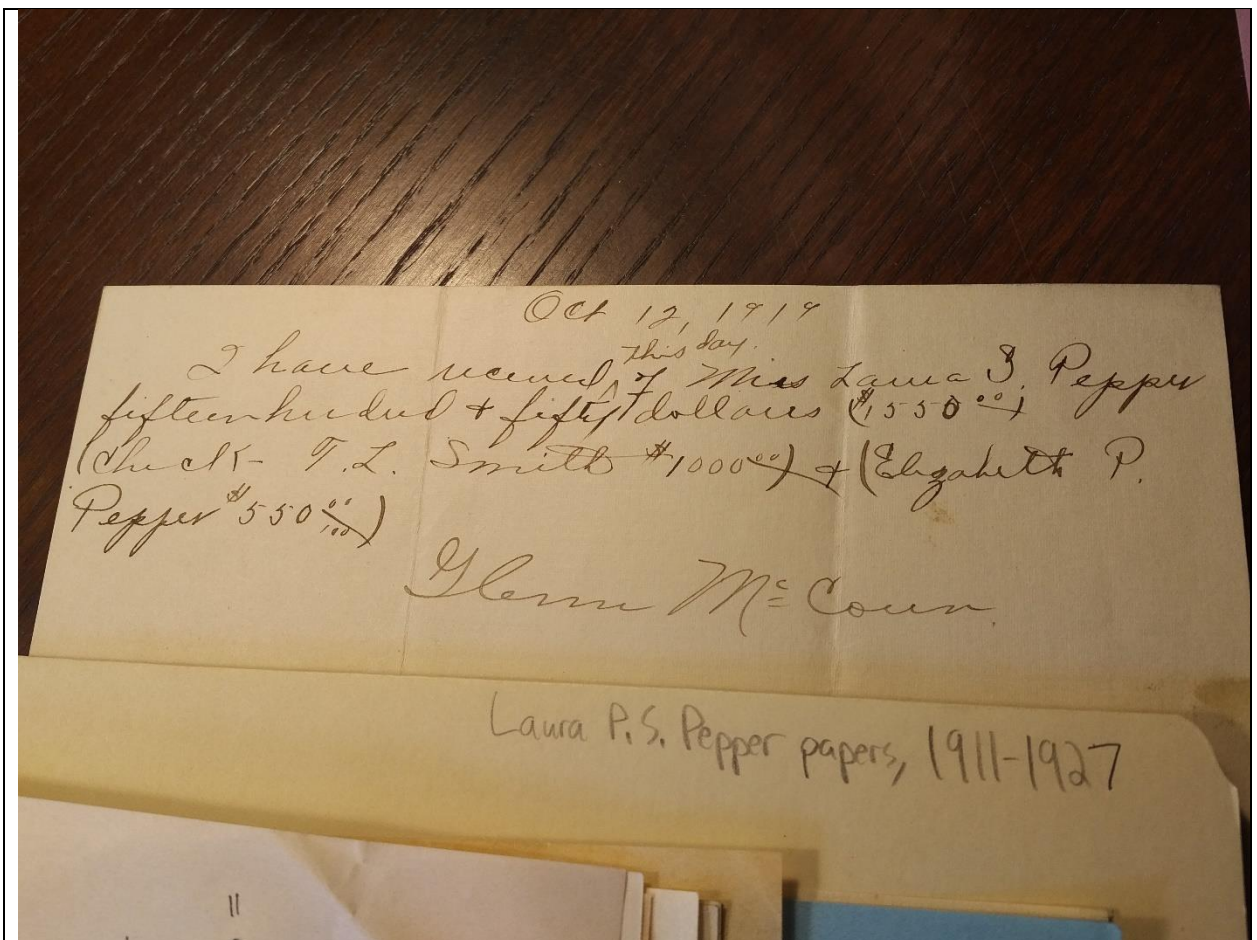 Oct 12, 1919
this day.
I have received ^ of Miss Laura S. Pepper
fifteen hundred + fifty dollars ($1550 00)
(check - T. L. Smith $1000 00) + (Elizabeth P.
Pepper $550 00/100)
Glenn McCoun
Laura P.S. Pepper papers, 1911-1927
11